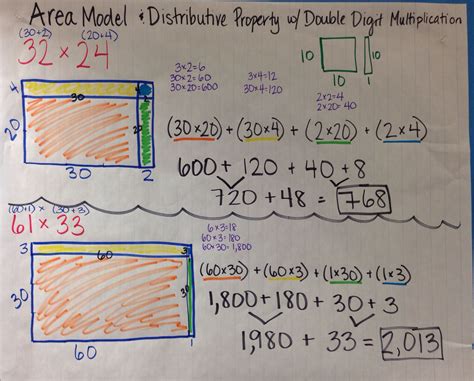 Area Model & Distributive Property w/ Double Digit Multiplication
(30+2) (20+4)
32 × 24
3×2=6
30×2=60
30×20=600
3×4=12
30×4=120
2×2=4
2×20=40
10
10
10
1
4
30
20
20
30
2
(30×20) + (30×4) + (2×20) + (2×4)
600 + 120 + 40 + 8
720 + 48 = 768
(60+1) × (30+3)
61 × 33
6×3=18
60×3=180
60×30=1,800
3
60
3
30
30
60
1
(60×30) + (60×3) + (1×30) + (1×3)
1,800 + 180 + 30 + 3
1,980 + 33 = 2,013